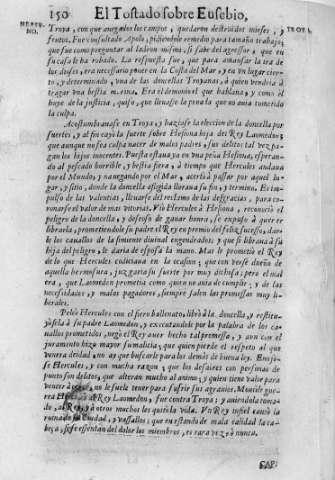 150 El Tostado sobre Eusebio,
Troya, con que anegados los campos, quedaron destruidos mieses, y
frutos. Fue consultado Apolo, pidiendole remedio para tamaño trabajo,
que fue como preguntar al ladron mismo, si sabe del agressor, que en
su casa le ha robado. La respuesta fue, que para amansar la ira de
los dioses, era necessario poner en la Costa del Mar, y en un lugar cier-
to, y determinado, una de las doncellas Troyanas, à quien vendria à
tragar una bestia marina. Era el demonio el que hablava, y como el
huye de la justicia, quiso, que llevasse la pena la que no avia cometido
la culpa.
Acostumbravase en Troya, y haziase la eleccion de la doncella por
suertes, y al fin cayò la suerte sobre Hesiona hija del Rey Laomedon;
que aunque no sea culpa nacer de malos padres, sus delitos tal vez pa-
gan los hijos inocentes. Puesta estava ya en una peña Hesiona, esperan-
do al pescado horrible, y bestia fiera, à tiempo que Hercules andava
por el Mundo, y navegando por el Mar, acertò à passar por aquel lu-
gar, y sitio, donde la doncella afligida llorava su fin, y termino. Es im-
pulso de las valentias, llevarse del reclamo de las desgracias, para co-
ronarse el valor de mas vitorias. Viò Hercules à Hesiona, reconociò el
peligro de la doncella, y deseoso de ganar honra, se expuso à querer
librarla, prometiendole su padre el Rey en premio del feliz sucesso, dar-
le los cavallos de la simiente divinal engendrados; y que si librava à su
hija del peligro, le daria de esposa la mano. Mas le prometiò el Rey
de lo que Hercules codiciava en la ocasion; que con verse dueño de
aquella hermosura, juzgaria su suerte por muy dichosa; pero el mal
era, que Laomedon prometia como quien no avia de cumplir; y de las
necessidades, y malos pagadores, siempre salen las promessas muy li-
berales.
Peleò Hercules con el fiero ballenato, librò à la doncella, y restitu-
yósela à su padre Laomedon, y executandole por la palabra de los ca-
vallos prometidos, negò el Rey aver hecho tal promessa, y aun con el
juramento hizo mayor su malicia; que quien pierde el respeto al que
venera deidad, no ay que buscarle para los demàs de buena ley. Enojò-
se Hercules, y con mucha razon; que los desaires con personas de
punto son delitos, que alteran mucho al animo; y quien tiene valor para
vencer no le suele tener para sufrir sus agravios. Moviò gue-
rra Hercules al Rey Laomedon, fue contra Troya; y aviendola toma-
do, al Rey, y à otros muchos les quitò la vida. Un Rey infiel causò la
ruina de su Ciudad, y vassallos; que en estando de mala calidad la ca-
beça, si se essentan del dolor los miembros, es rara vez, ò nunca.